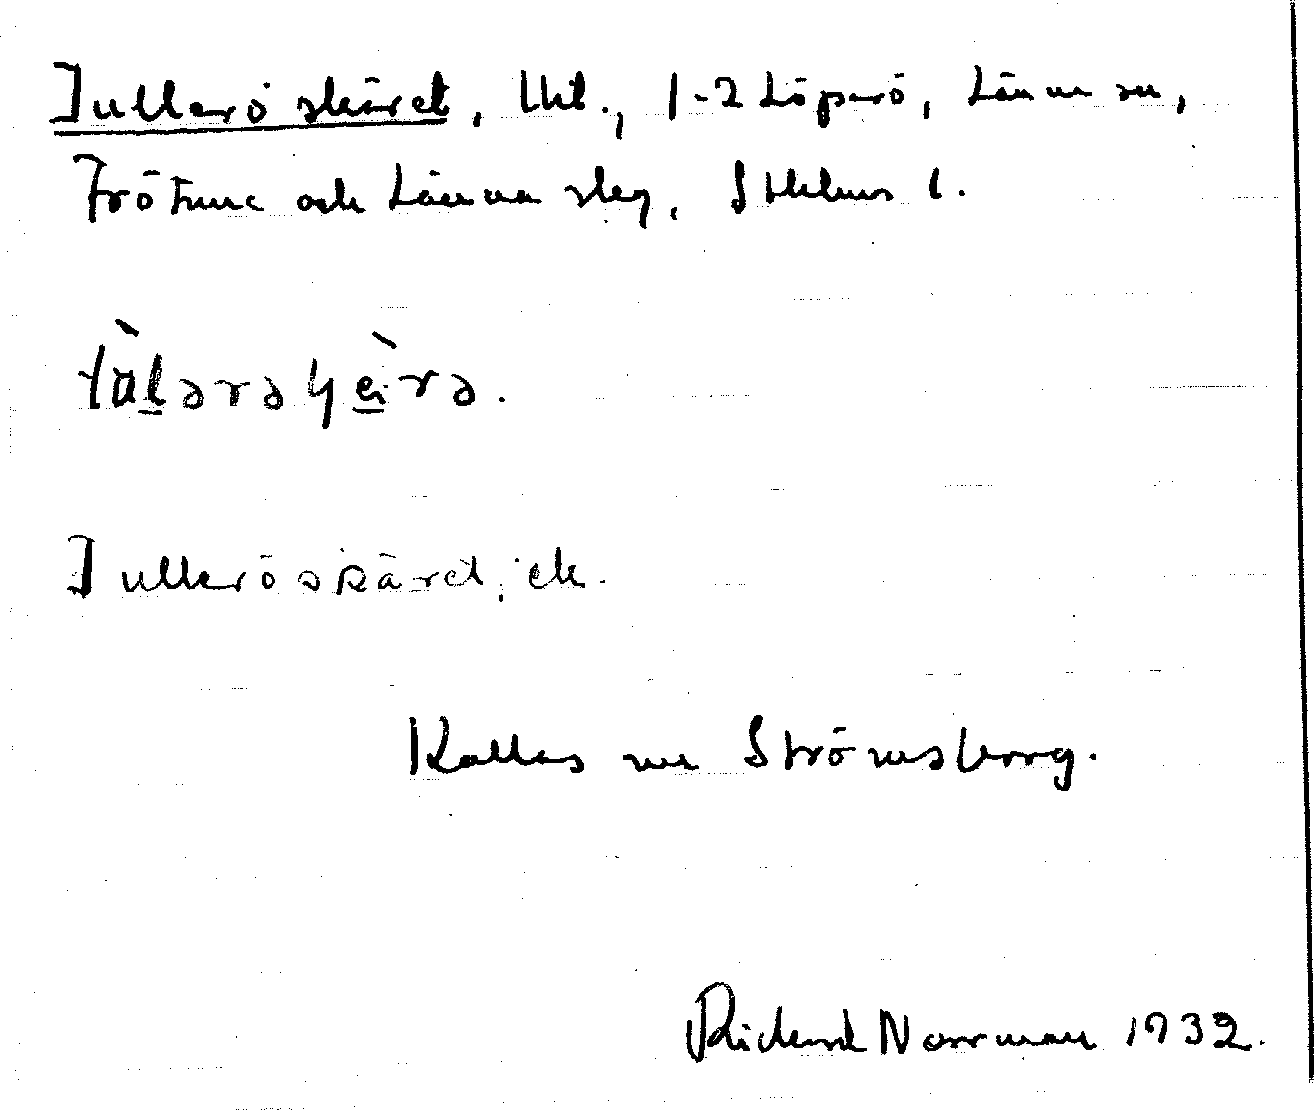 Tulleröskäret, lht., 1-2 Löparö, Länna sn,
Frötuna och Länna skg, Sthlms l.
Tulleröskäret, ek.
Kallas nu Strömsborg.
Rickard Norrman 1932.